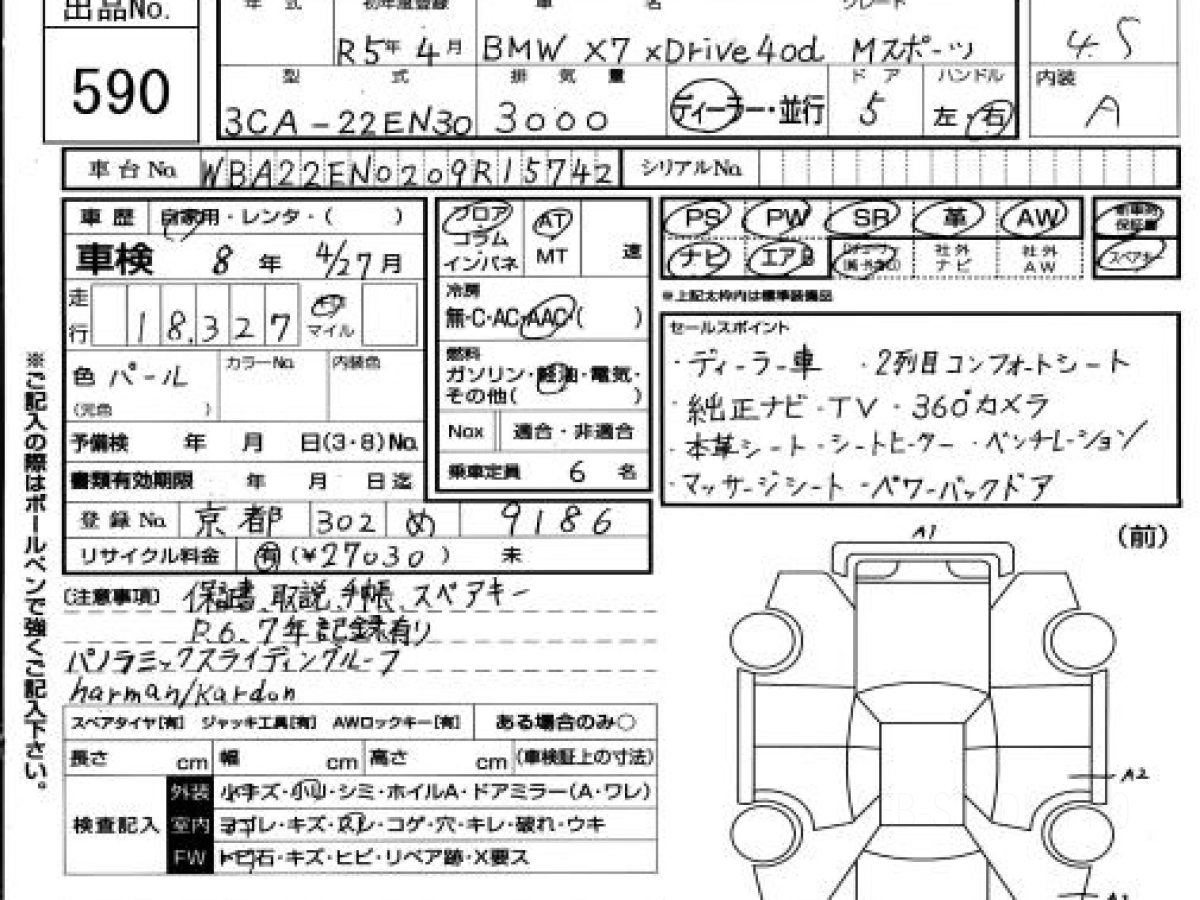 出品No.
590
年 式 初年度登録 車 名 グレード
R5年 4月 BMW X7 xDrive40d Mスポーツ 4.5
型 式 排 気 量 ディーラー・並行 ド ア ハンドル 内装
3CA-22EN30 3000 5 左・右 A
車 台 No. WBA22EN0209R15742 シリアルNo.
車 歴 自家用・レンタ・( )
車検 8 年 4/27 月
走行 18,327 マイル
色 パール カラーNo. 内装色
(元色 )
予備検 年 月 日(3・8)No.
書類有効期限 年 月 日迄
登 録 No. 京都 302 め 9186
リサイクル料金 有 (¥27030) 未
フロア
コラム
インパネ
AT
MT
速
冷房
無・C・AC・AAC( )
燃料
ガソリン・軽油・電気・
その他( )
Nox 適合・非適合
乗車定員 6 名
PS PW SR 革 AW 新車時保証書
ナビ エアB 社 外 ナ ビ 社 外 A W スペアキー
※上記太枠内は標準装備品
セールスポイント
・ディーラー車 ・2列目コンフォートシート
・純正ナビ・TV・360°カメラ
・本革シート・シートヒーター・ベンチレーション
・マッサージシート・パワーバックドア
(注意事項) 保証書、取説、手帳、スペアキー
R6、7年記録有り
パノラミックスライディングルーフ
harman/kardon
スペアタイヤ[有] ジャッキ工具[有] AWロックキー[有] ある場合のみ○
長さ cm 幅 cm 高さ cm (車検証上の寸法)
検査記入
外装 小キズ・小凹・シミ・ホイルA・ドアミラー(A・ワレ)
室内 ヨゴレ・キズ・スレ・コゲ・穴・キレ・破れ・ウキ
FW トビ石・キズ・ヒビ・リペア跡・X要ス
※ご記入の際はボールペンで強くご記入下さい。
(前)
A1
A2